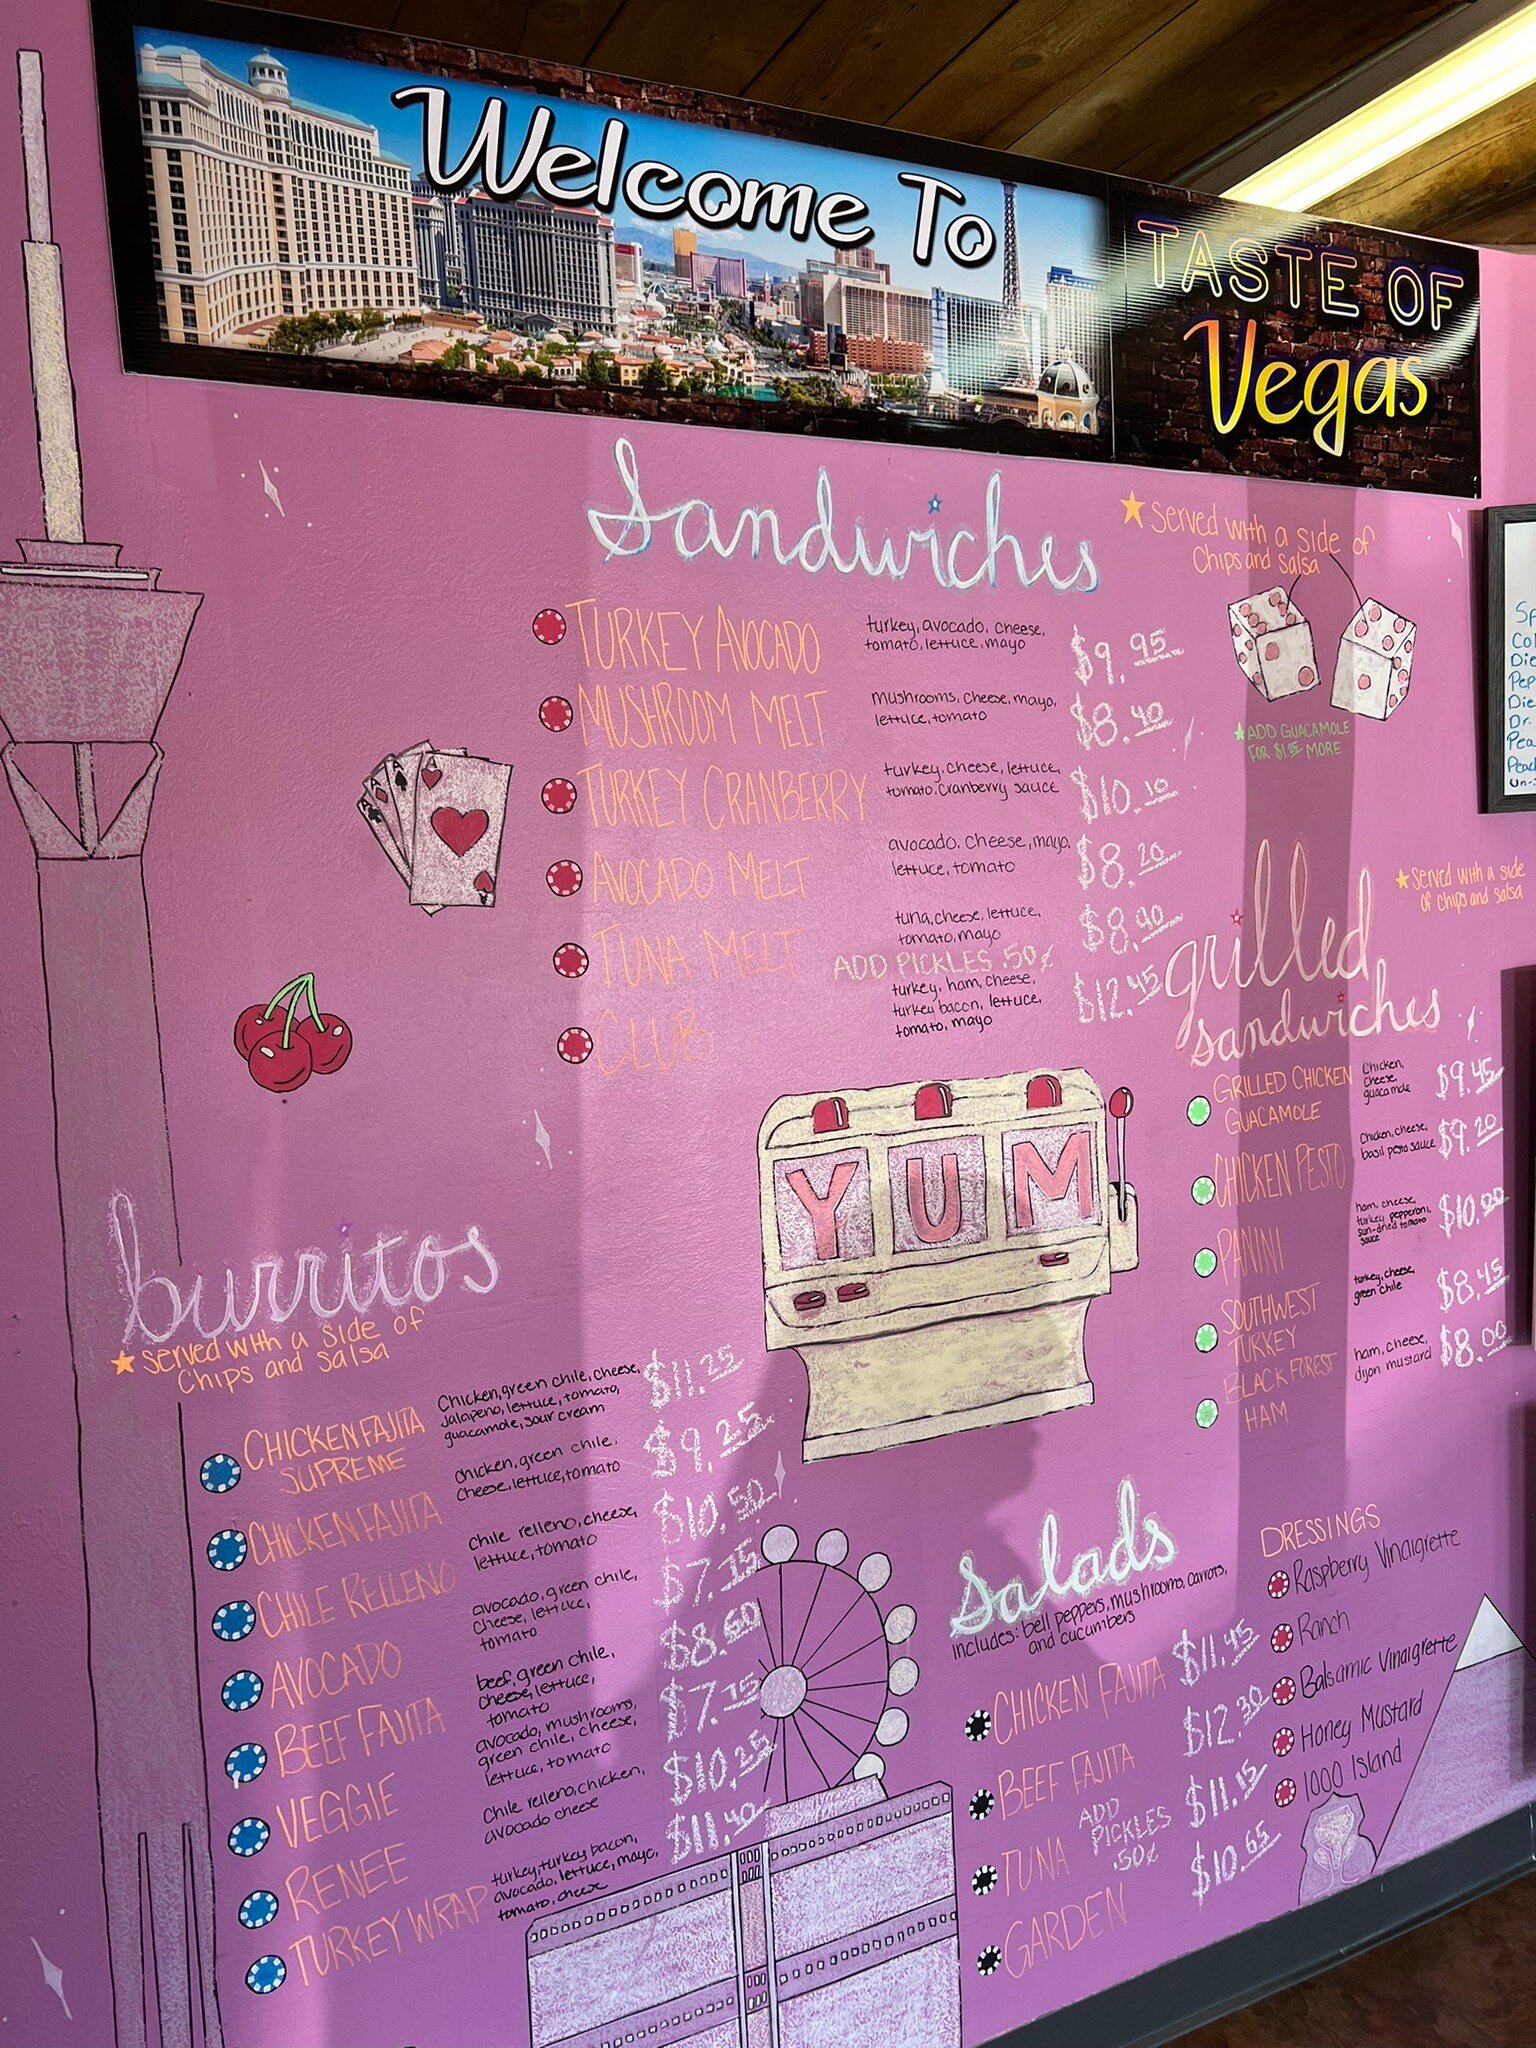 Welcome To
TASTE OF
Vegas
Sandwiches
Served with a side of
Chips and Salsa
TURKEY AVOCADO
turkey, avocado, cheese,
tomato, lettuce, mayo
$9.95
MUSHROOM MELT
mushrooms, cheese, mayo,
lettuce, tomato
$8.40
TURKEY CRANBERRY
turkey, cheese, lettuce,
tomato, cranberry sauce
$10.10
AVOCADO MELT
avocado, cheese, mayo,
lettuce, tomato
$8.20
TUNA MELT
tuna, cheese, lettuce,
tomato, mayo
$8.90
ADD PICKLES .50¢
CLUB
turkey, ham, cheese,
turkey bacon, lettuce,
tomato, mayo
$12.45
ADD GUACAMOLE
FOR $1.25 MORE
A
A
A
A
YUM
grilled
sandwiches
Served with a side
of chips and salsa
GRILLED CHICKEN
GUACAMOLE
Chicken,
cheese,
guacamole
$9.45
CHICKEN PESTO
Chicken, cheese,
basil pesto sauce
$9.20
PANINI
ham, cheese,
turkey pepperoni,
sun-dried tomato
sauce
$10.00
SOUTHWEST
TURKEY
turkey, cheese,
green chile
$8.45
BLACK FOREST
HAM
ham, cheese,
dijon mustard
$8.00
burritos
Served with a side of
Chips and Salsa
CHICKEN FAJITA
SUPREME
Chicken, green chile, cheese,
jalapeno, lettuce, tomato,
guacamole, sour cream
$11.25
CHICKEN FAJITA
chicken, green chile,
cheese, lettuce, tomato
$9.25
CHILE RELLENO
chile relleno, cheese,
lettuce, tomato
$10.50
AVOCADO
avocado, green chile,
cheese, lettuce,
tomato
$7.15
BEEF FAJITA
beef, green chile,
cheese, lettuce,
tomato
$8.60
VEGGIE
avocado, mushrooms,
green chile, cheese,
lettuce, tomato
$7.15
RENEE
Chile relleno, chicken,
avocado cheese
$10.25
TURKEY WRAP
turkey, turkey bacon,
avocado, lettuce, mayo,
tomato, cheese
$11.40
Salads
includes: bell peppers, mushrooms, carrots,
and cucumbers
CHICKEN FAJITA
$11.45
BEEF FAJITA
$12.30
TUNA
ADD
PICKLES
.50¢
$11.15
GARDEN
$10.65
DRESSINGS
Raspberry Vinaigrette
Ranch
Balsamic Vinaigrette
Honey Mustard
1000 Island
Die
Pep
Die
Dr.